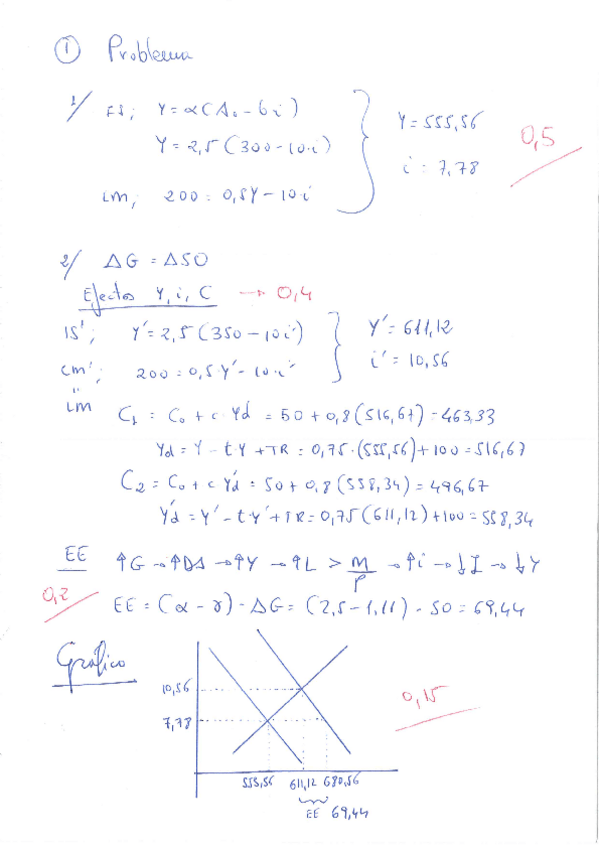 ① Problema
1/ IS; Y = α(A₀ - b i)
Y = 2,5(300 - 10 i)
LM; 200 = 0,5Y - 10 i
Y = 555,56
i = 7,78
0,5
2/ ΔG = Δ50
Efectos Y, i, C → 0,4
IS'; Y' = 2,5(350 - 10 i')
LM'; 200 = 0,5Y' - 10 i'
"
LM
Y' = 611,12
i' = 10,56
C₁ = C₀ + c · Yd = 50 + 0,8(516,67) = 463,33
Yd = Y - t·Y + TR = 0,75·(555,56) + 100 = 516,67
C₂ = C₀ + c Y'd = 50 + 0,8(558,34) = 496,67
Y'd = Y' - t·Y' + TR = 0,75(611,12) + 100 = 558,34
EE ↑G → ↑DA → ↑Y → ↑L > M/P → ↑i → ↓I → ↓Y
0,2
EE = (α - γ) · ΔG = (2,5 - 1,11) · 50 = 69,44
Gráfico
10,56
7,78
0,15
555,56 611,12 680,56
EE 69,44